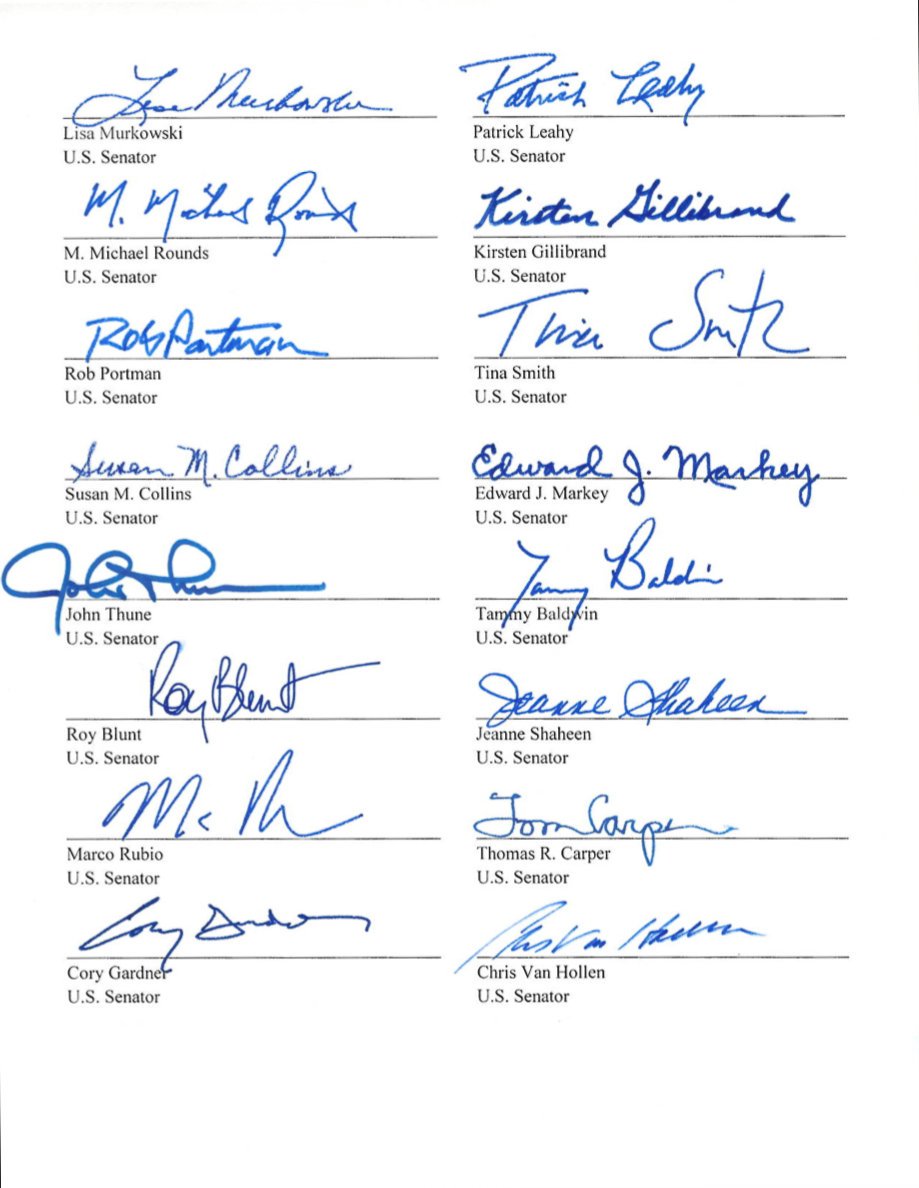 Lisa Murkowski
Lisa Murkowski
U.S. Senator
Patrick Leahy
Patrick Leahy
U.S. Senator
M. Michael Rounds
M. Michael Rounds
U.S. Senator
Kirsten Gillibrand
Kirsten Gillibrand
U.S. Senator
Rob Portman
Rob Portman
U.S. Senator
Tina Smith
Tina Smith
U.S. Senator
Susan M. Collins
Susan M. Collins
U.S. Senator
Edward J. Markey
Edward J. Markey
U.S. Senator
John Thune
John Thune
U.S. Senator
Tammy Baldwin
Tammy Baldwin
U.S. Senator
Roy Blunt
Roy Blunt
U.S. Senator
Jeanne Shaheen
Jeanne Shaheen
U.S. Senator
Marco Rubio
U.S. Senator
Tom Carper
Thomas R. Carper
U.S. Senator
Cory Gardner
Cory Gardner
U.S. Senator
Chris Van Hollen
Chris Van Hollen
U.S. Senator